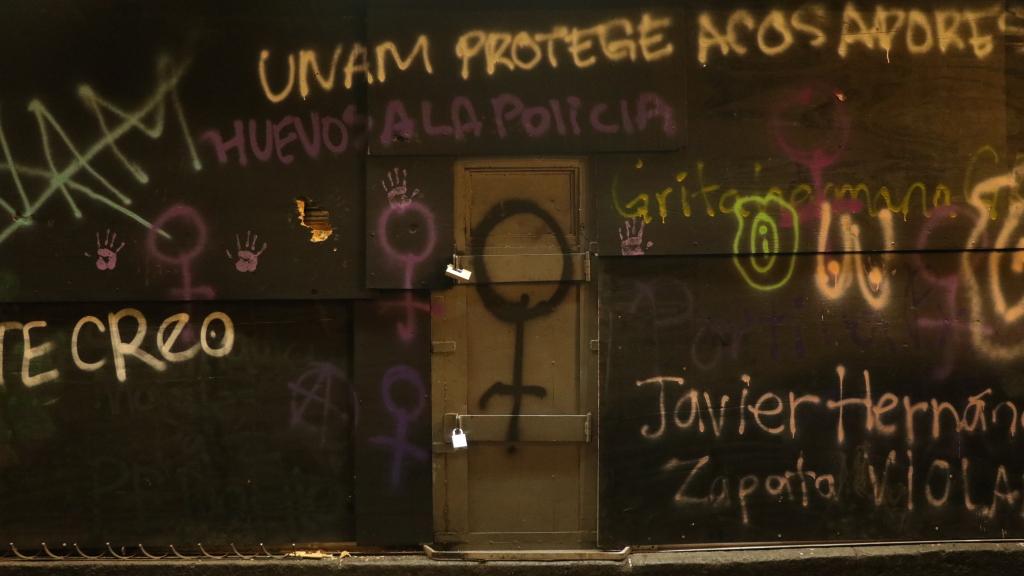 UNAM PROTEGE ACOSADORES
HUEVOS A LA POLICIA
Grita hermana
TE CREO
Javier Hernán
Zapata VIOLA